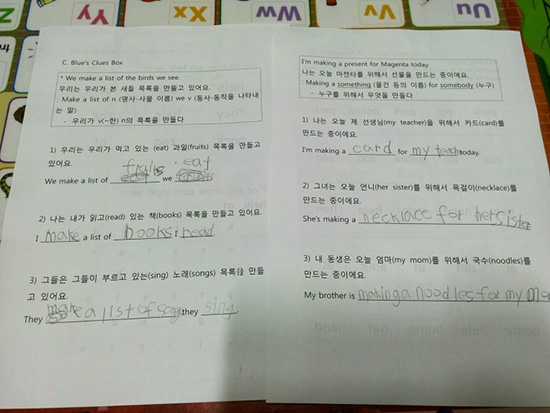 Uu
Vv
Ww
Xx
C. Blue's Clues Box
* We make a list of the birds we see.
우리는 우리가 본 새들 목록을 만들고 있어요.
: Make a list of n (명사-사물 이름) we v (동사-동작을 나타내
는 말)
- 우리가 v(~한) n의 목록을 만들다
1) 우리는 우리가 먹고 있는 (eat) 과일(fruits) 목록을 만들고
있어요.
We make a list of fruits we eat
2) 나는 내가 읽고(read) 있는 책(books) 목록을 만들고 있어요.
I make a list of books i read
3) 그들은 그들이 부르고 있는(sing) 노래(songs) 목록을 만들
고 있어요.
They make a list of song they sing
I'm making a present for Magenta today.
나는 오늘 마젠타를 위해서 선물을 만드는 중이에요.
: Making a something (물건 등의 이름) for somebody (누구)
- 누구를 위해서 무엇을 만들다
1) 나는 오늘 제 선생님(my teacher)을 위해서 카드(card)를
만드는 중이에요.
I'm making a card for my today.
2) 그녀는 오늘 언니(her sister)를 위해서 목걸이(necklace)를
만드는 중이에요.
She's making a necklace for her sister
3) 내 동생은 오늘 엄마(my mom)를 위해서 국수(noodles)를
만드는 중이에요.
My brother is making a noodles for my